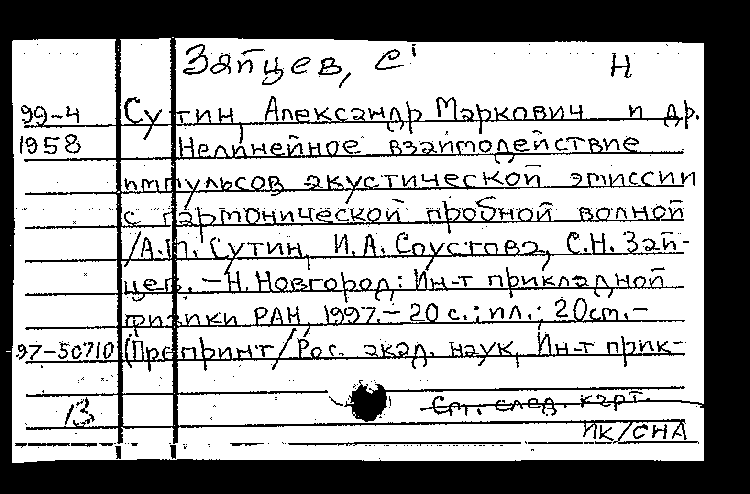 Зайцев, С
Н
99-4 Сутин, Александр Маркович и др.
1958 Нелинейное взаимодействие
импульсов акустической эмиссии
с гармонической пробной волной
/А.М. Сутин, И.А. Соустова, С.Н. Зай-
цев. - Н. Новгород: Ин-т прикладной
физики РАН, 1997. - 20 с.: ил.; 20см. -
97-50710 (Препринт/Рос. акад. наук, Ин-т прик-
13 См. след. карт.
ПК/СНА